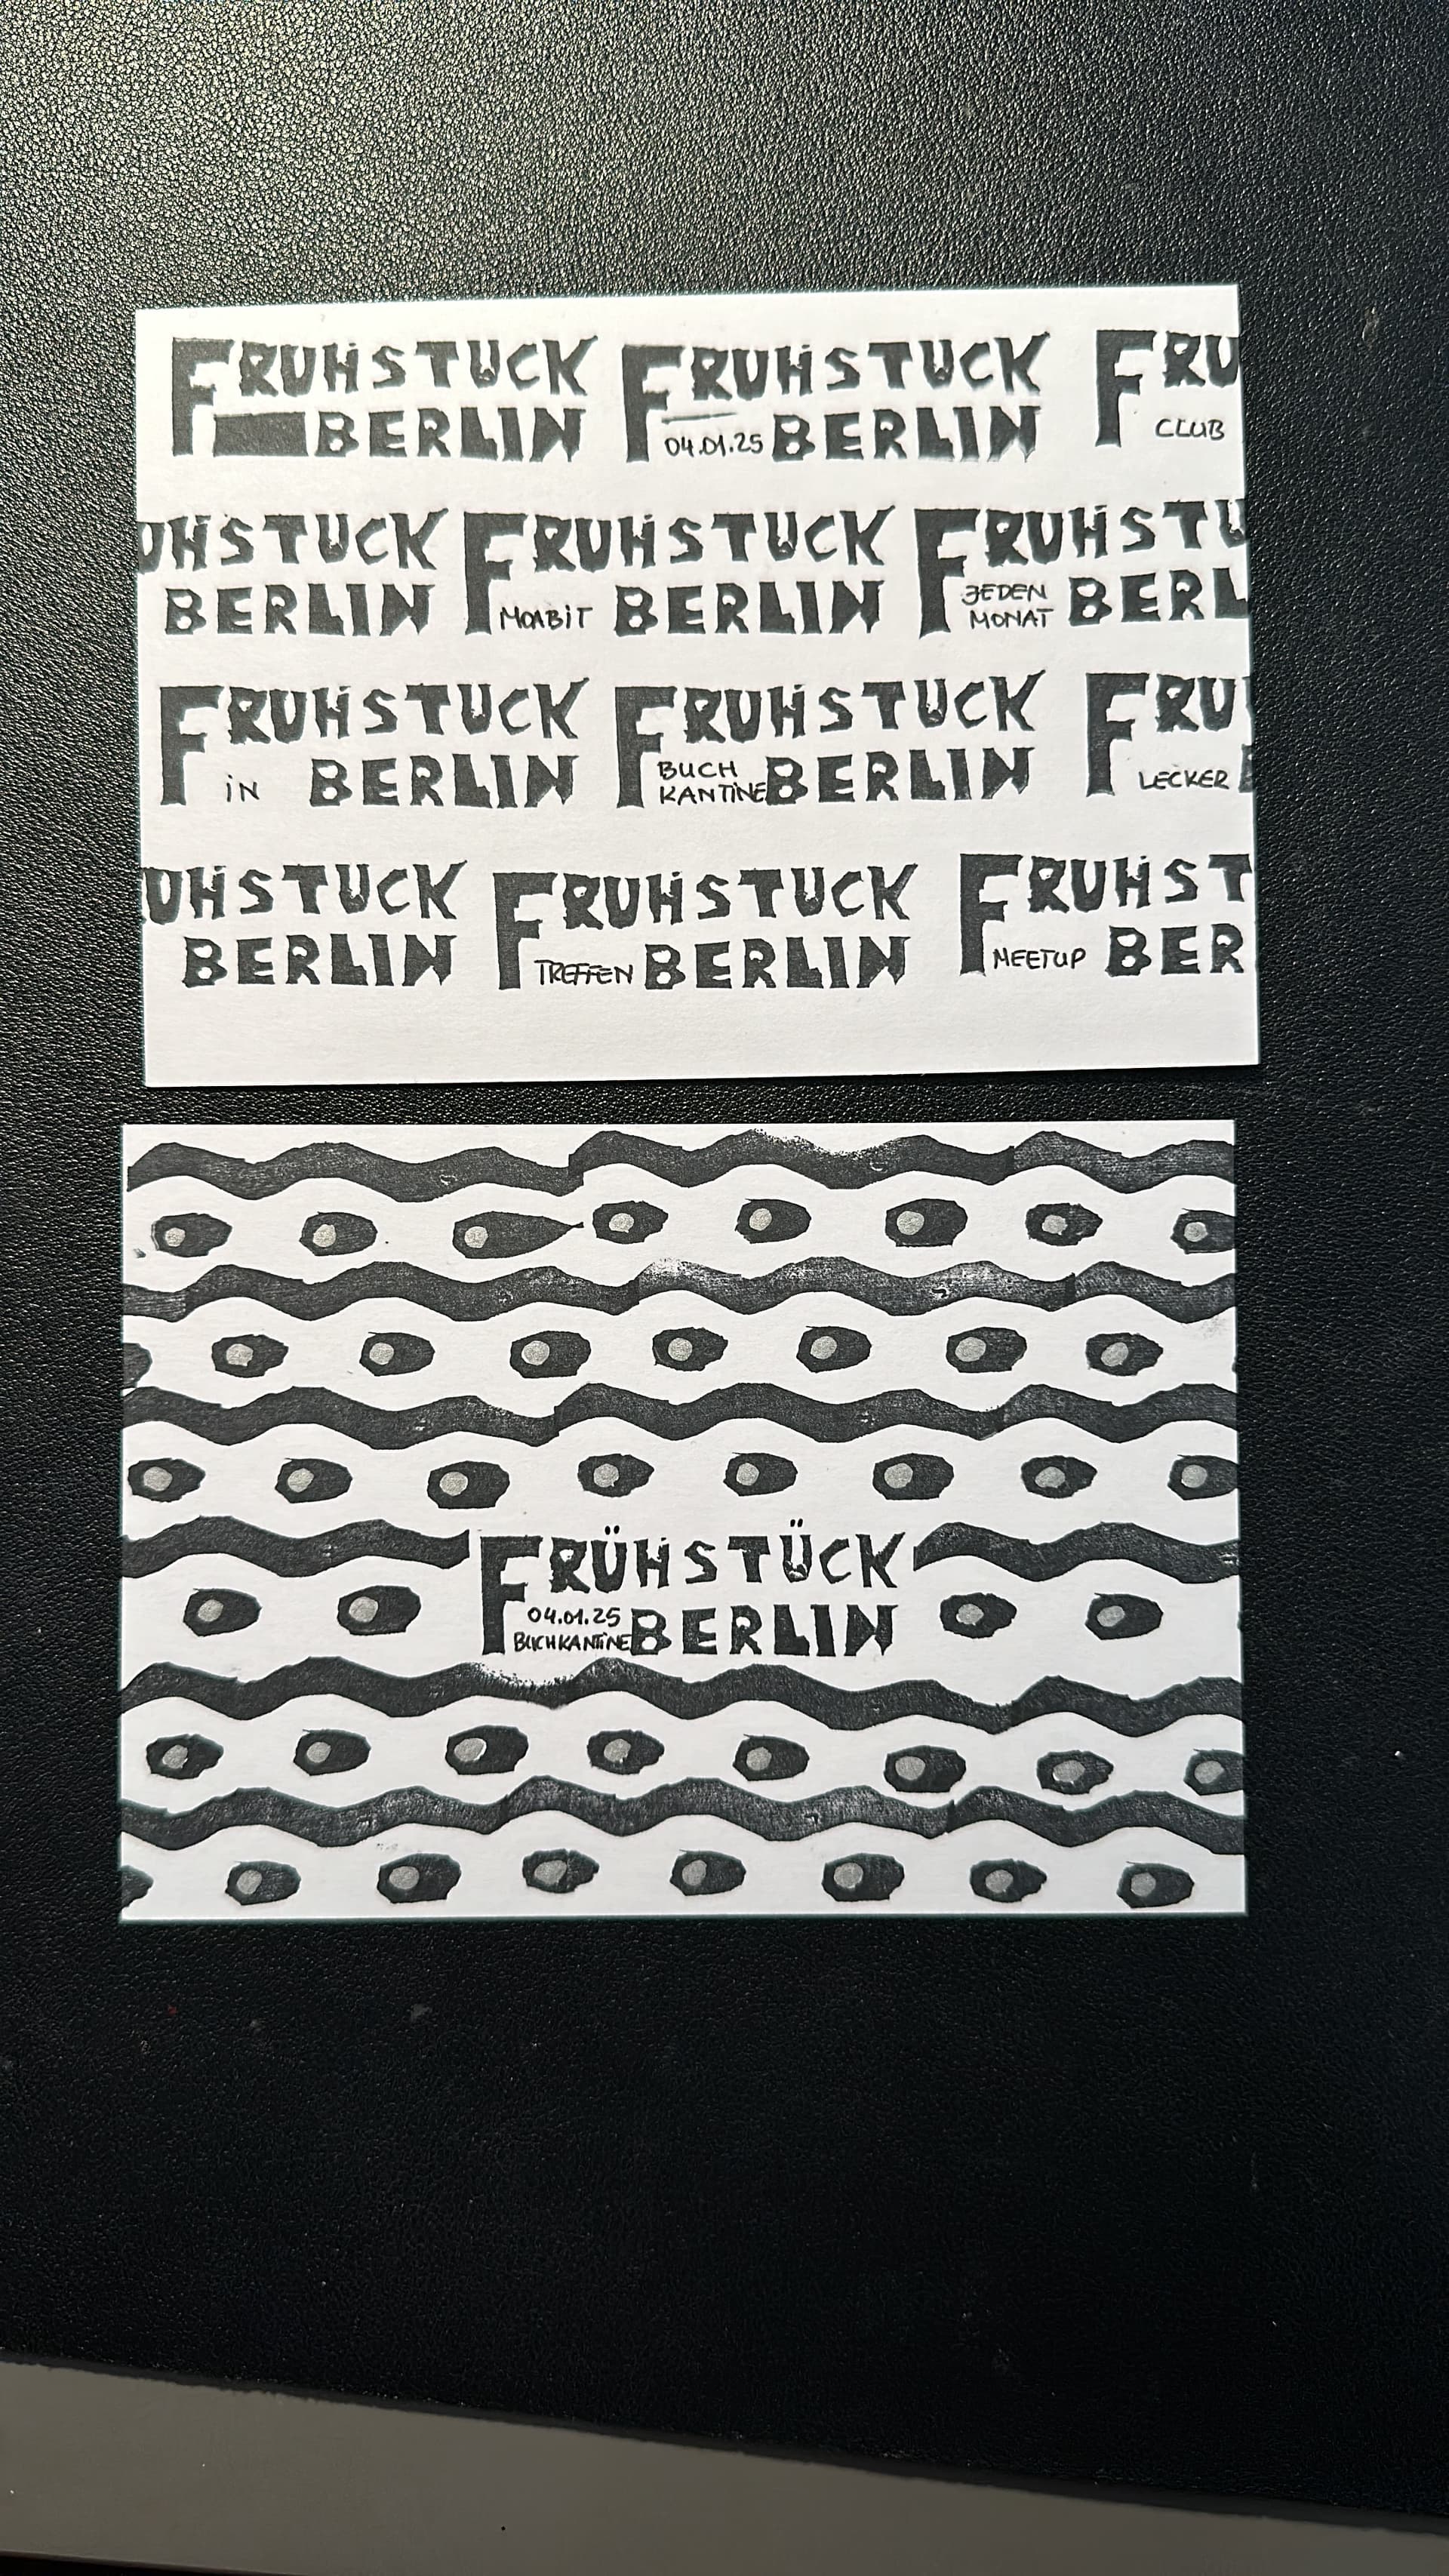 FRUHSTUCK FRUHSTUCK FRU
BERLIN 04.01.25 BERLIN CLUB
UHSTUCK FRUHSTUCK FRUHSTU
BERLIN MOABiT BERLIN JEDEN MONAT BERL
FRUHSTUCK FRUHSTUCK FRU
iN BERLIN BUCH KANTiNE BERLIN LECKER B
UHSTUCK FRUHSTUCK FRUHST
BERLIN TREFFEN BERLIN MEETUP BER
FRÜHSTÜCK
04.01.25
BUCHKANTiNE BERLIN